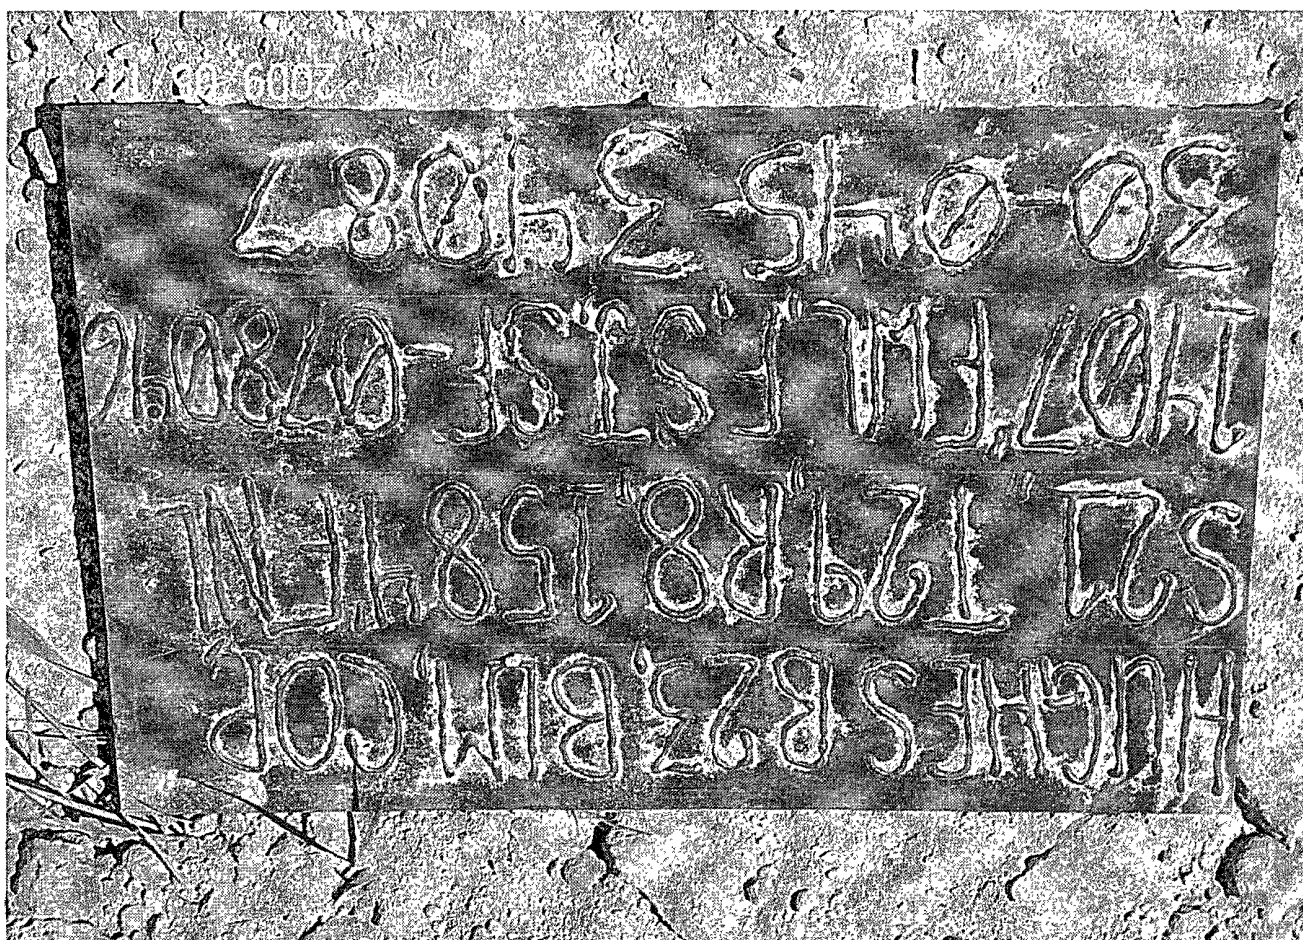 HUGHES B 23, COP
S27, T29,R8,1584'FNL
1407'FWL, SF-078046
30-045-34087
2009